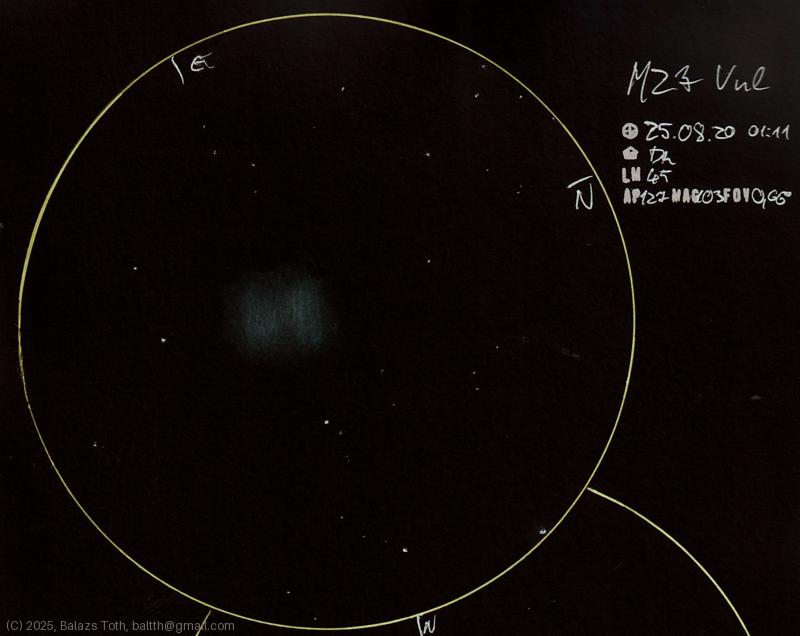 E
M27 Vul
25.08.20 01:11
LM 45
AP127 MAG103 FOV0,66
N
W
(C) 2025, Balazs Toth, baltth@gmail.com